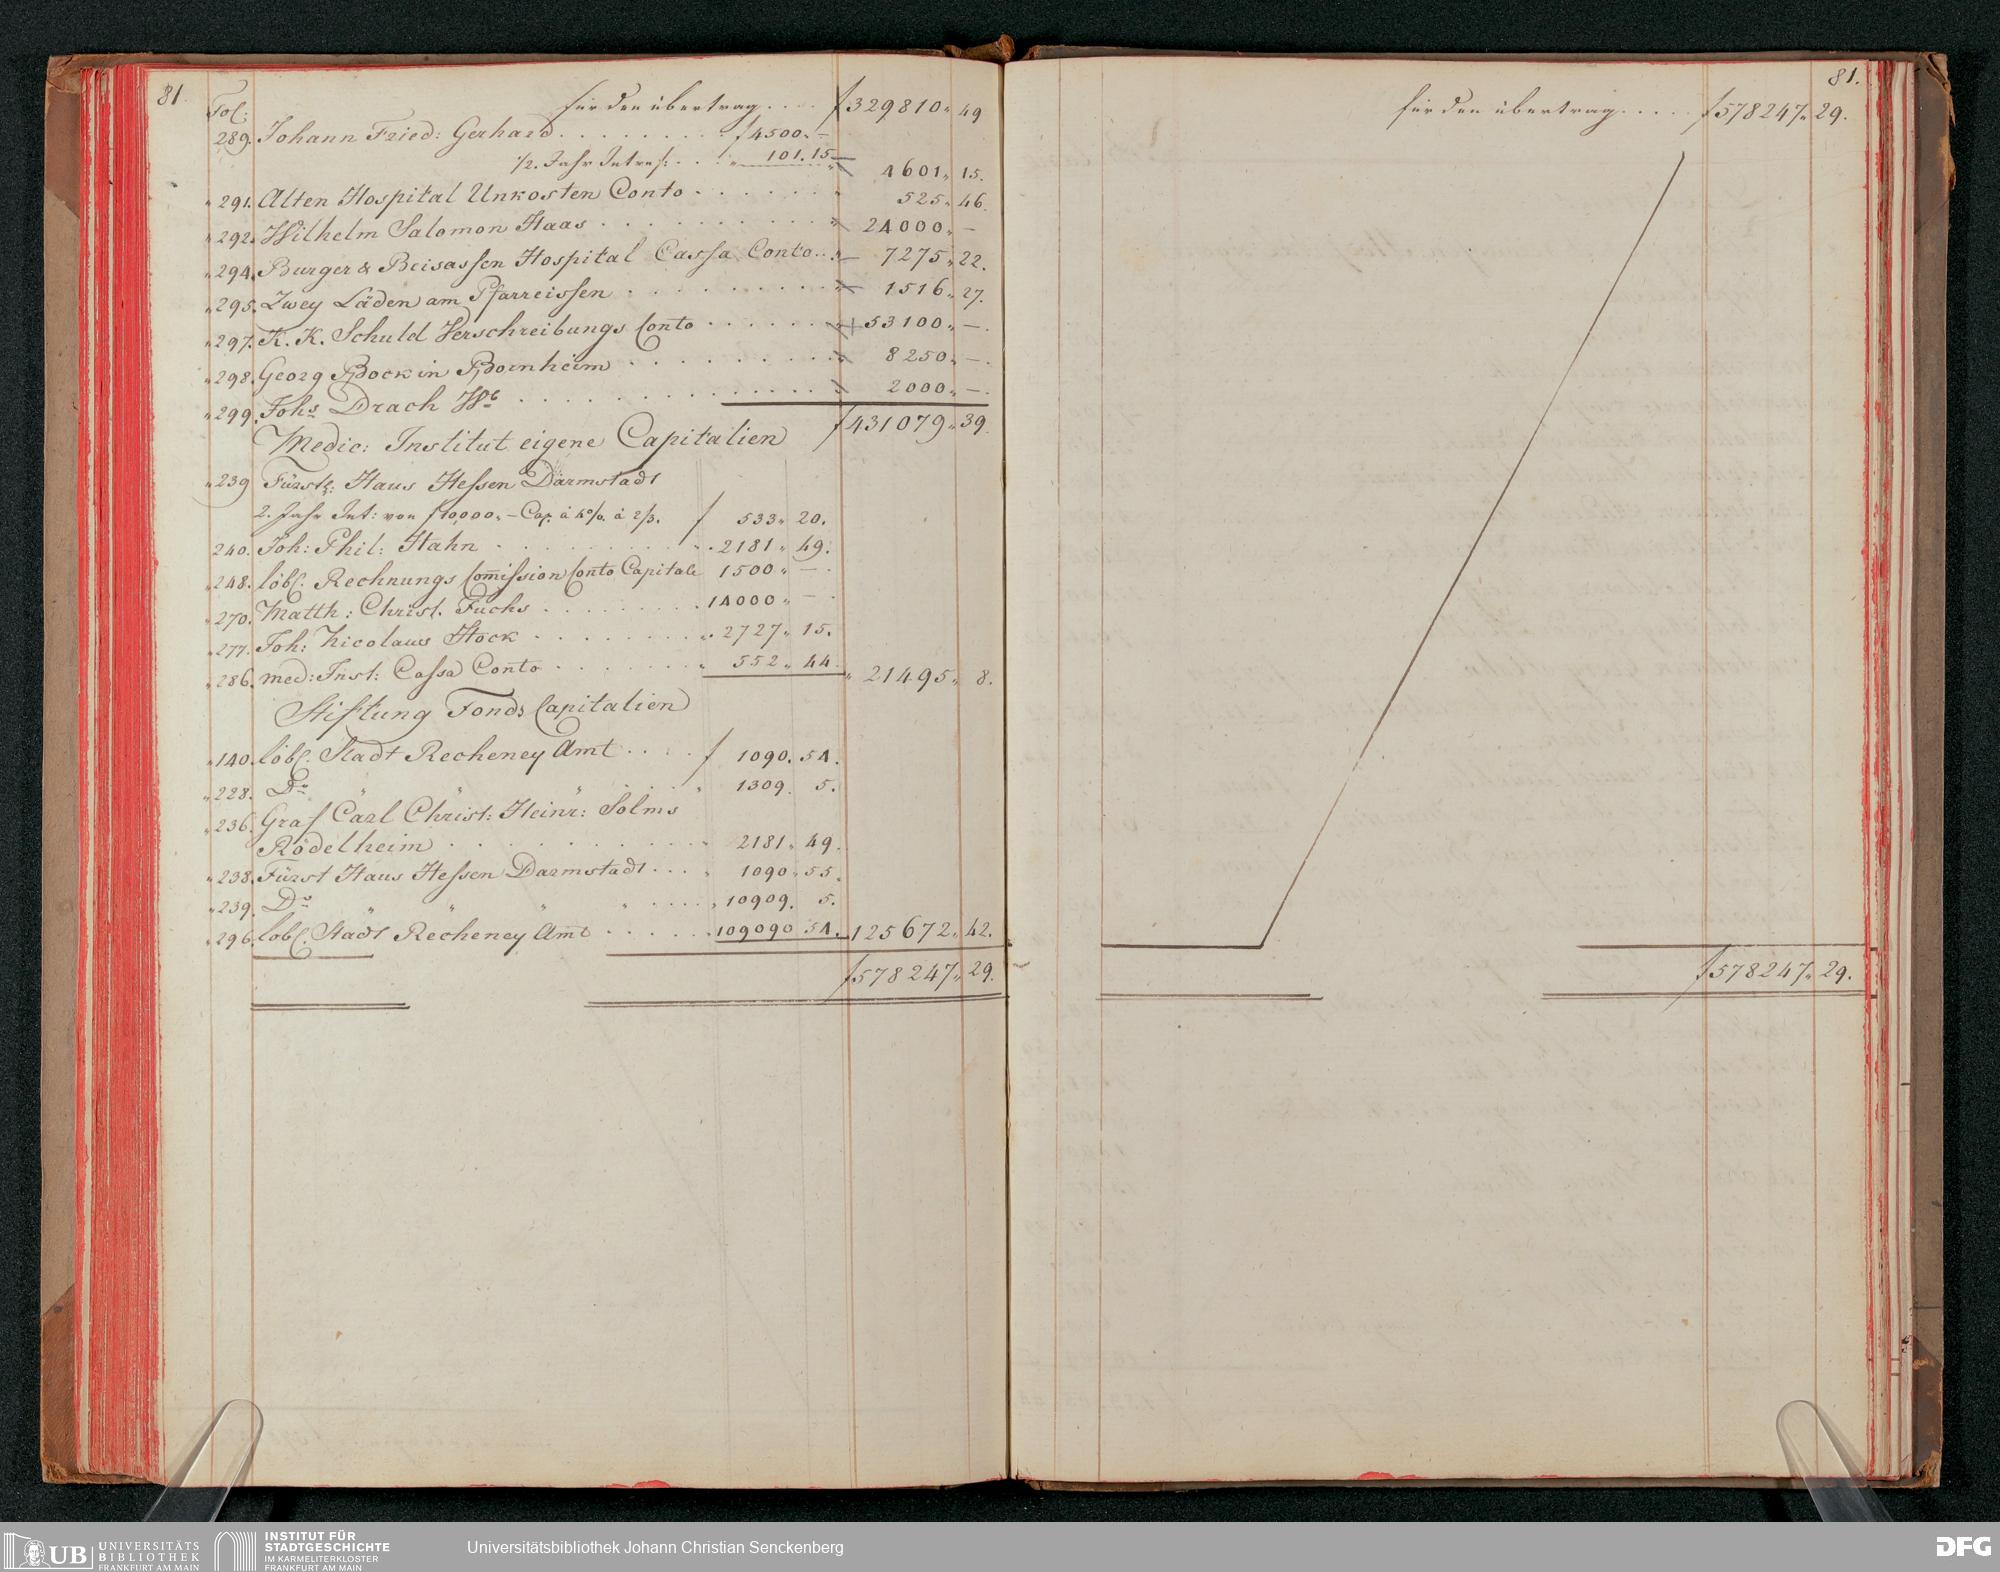 81.
Fol: für den übertrag . . . . f 329810 „ 49
289. Johann Fried: Gerhard . . . . . . . . f 4500 „ –
1/2. Jahr Intres: . . . „ 101. 15 „ 4601 „ 15.
„ 291. Alten Hospital Unkosten Conto . . . . . . „ 525 „ 46.
„ 292. Wilhelm Salomon Haas . . . . . . . . . „ 24000 „ –
„ 294. Burger & Beisassen Hospital Cassa Conto . . „ 7275 „ 22.
„ 295. Zwey Läden am Pfarreissen . . . . . . . . „ 1516 „ 27.
„ 297. K. K. Schuld Verschreibungs Conto . . . . . . „ 53100 „ – .
„ 298. Georg Bock in Bornheim . . . . . . . . „ 8250 „ – .
„ 299. Johs Drach Wb . . . . . . . . . . . . „ 2000 „ – .
f 431079 „ 39.
Medic: Institut eigene Capitalien
„ 239 Fürstl: Haus Hessen Darmstadt
2. Jahr Int: von f 10,000 „ – Cap. à 4 %. à 2/3. f 533 „ 20.
240. Joh: Phil: Hahn . . . . . . . . „ 2181 „ 49.
„ 248. löbl. Rechnungs Commission Conto Capitale 1500 „ – .
„ 270. Matth: Christ. Fuchs . . . . . . . . 14000 „ – .
„ 277. Joh: Nicolaus Stock . . . . . . . „ 2727 „ 15.
„ 286. med: Inst: Cassa Conto . . . . . . „ 552 „ 44. „ 21495 „ 8.
Stiftung Fonds Capitalien
„ 140. löbl. Stadt Recheney Amt . . . . f 1090. 54.
„ 228. Do „ „ . . . . „ 1309. 5.
„ 236. Graf Carl Christ: Heinr: Solms
Rödelheim . . . . . . . . . . „ 2181 „ 49.
„ 238. Fürst Haus Hessen Darmstadt . . . „ 1090 „ 55.
„ 239. Do „ „ „ „ . . . . „ 10909. 5.
„ 296. löbl. Stadt Recheney Amt . . . . . . 109090 54. 125672 „ 42.
f 578247 „ 29.
81.
für den übertrag . . . . . f 578247 „ 29.
f 578247 „ 29.
UB UNIVERSITÄTS
BIBLIOTHEK
FRANKFURT AM MAIN
INSTITUT FÜR
STADTGESCHICHTE
IM KARMELITERKLOSTER
FRANKFURT AM MAIN
Universitätsbibliothek Johann Christian Senckenberg
DFG